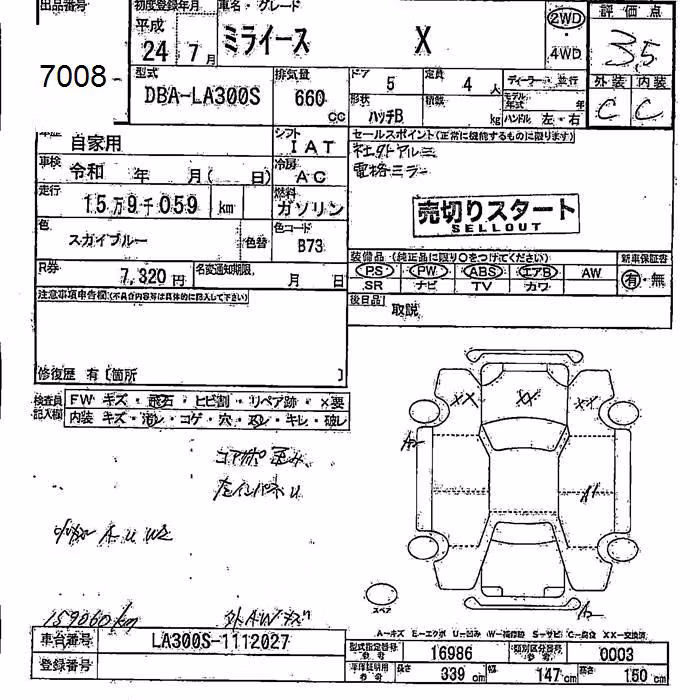 出品番号
7008
初度登録年月
平成
24年 7月
車名・グレード
ミライース X
2WD
・
4WD
評価点
3.5
外装 内装
C C
型式
DBA-LA300S
排気量
660 cc
ドア 5
定員 4 人
形状 ハッチB
積載 kg
ディーラー・並行
モデル年式 年
ハンドル 左・右
車歴 自家用
シフト IAT
車検 令和 年 月( 日)
冷房 AC
走行 15万9千059 km
燃料 ガソリン
色 スカイブルー 色替
色コード B73
R券 7,320円
名変通知期限 月 日
セールスポイント(正常に機能するものに限ります)
社外アルミ
電格ミラー
売切りスタート
SELLOUT
装備品(純正品に限り○をつけてください)
新車保証書
PS PW ABS エアB AW
SR ナビ TV カワ
有・無
後日品 取説
注意事項申告欄(不具合内容等は具体的に記入して下さい)
修復歴 有〔箇所 〕
検査員記入欄
FW キズ・飛石・ヒビ割・リペア跡・×要
内装 キズ・汚レ・コゲ・穴・スレ・キレ・破レ
XX XX XX
A2
A1
コアサポ歪み
左インパネU
A U W2
159060km
外AWキズ
スペア
A2
A-キズ E-エクボ U-凹み W-補修跡 S-サビ C-腐食 XX-交換済
車台番号 LA300S-1112027
登録番号
型式指定番号 参考 16986
類別区分番号 参考 0003
車庫証明用 参考 長さ 339 cm 幅 147 cm 高さ 150 cm